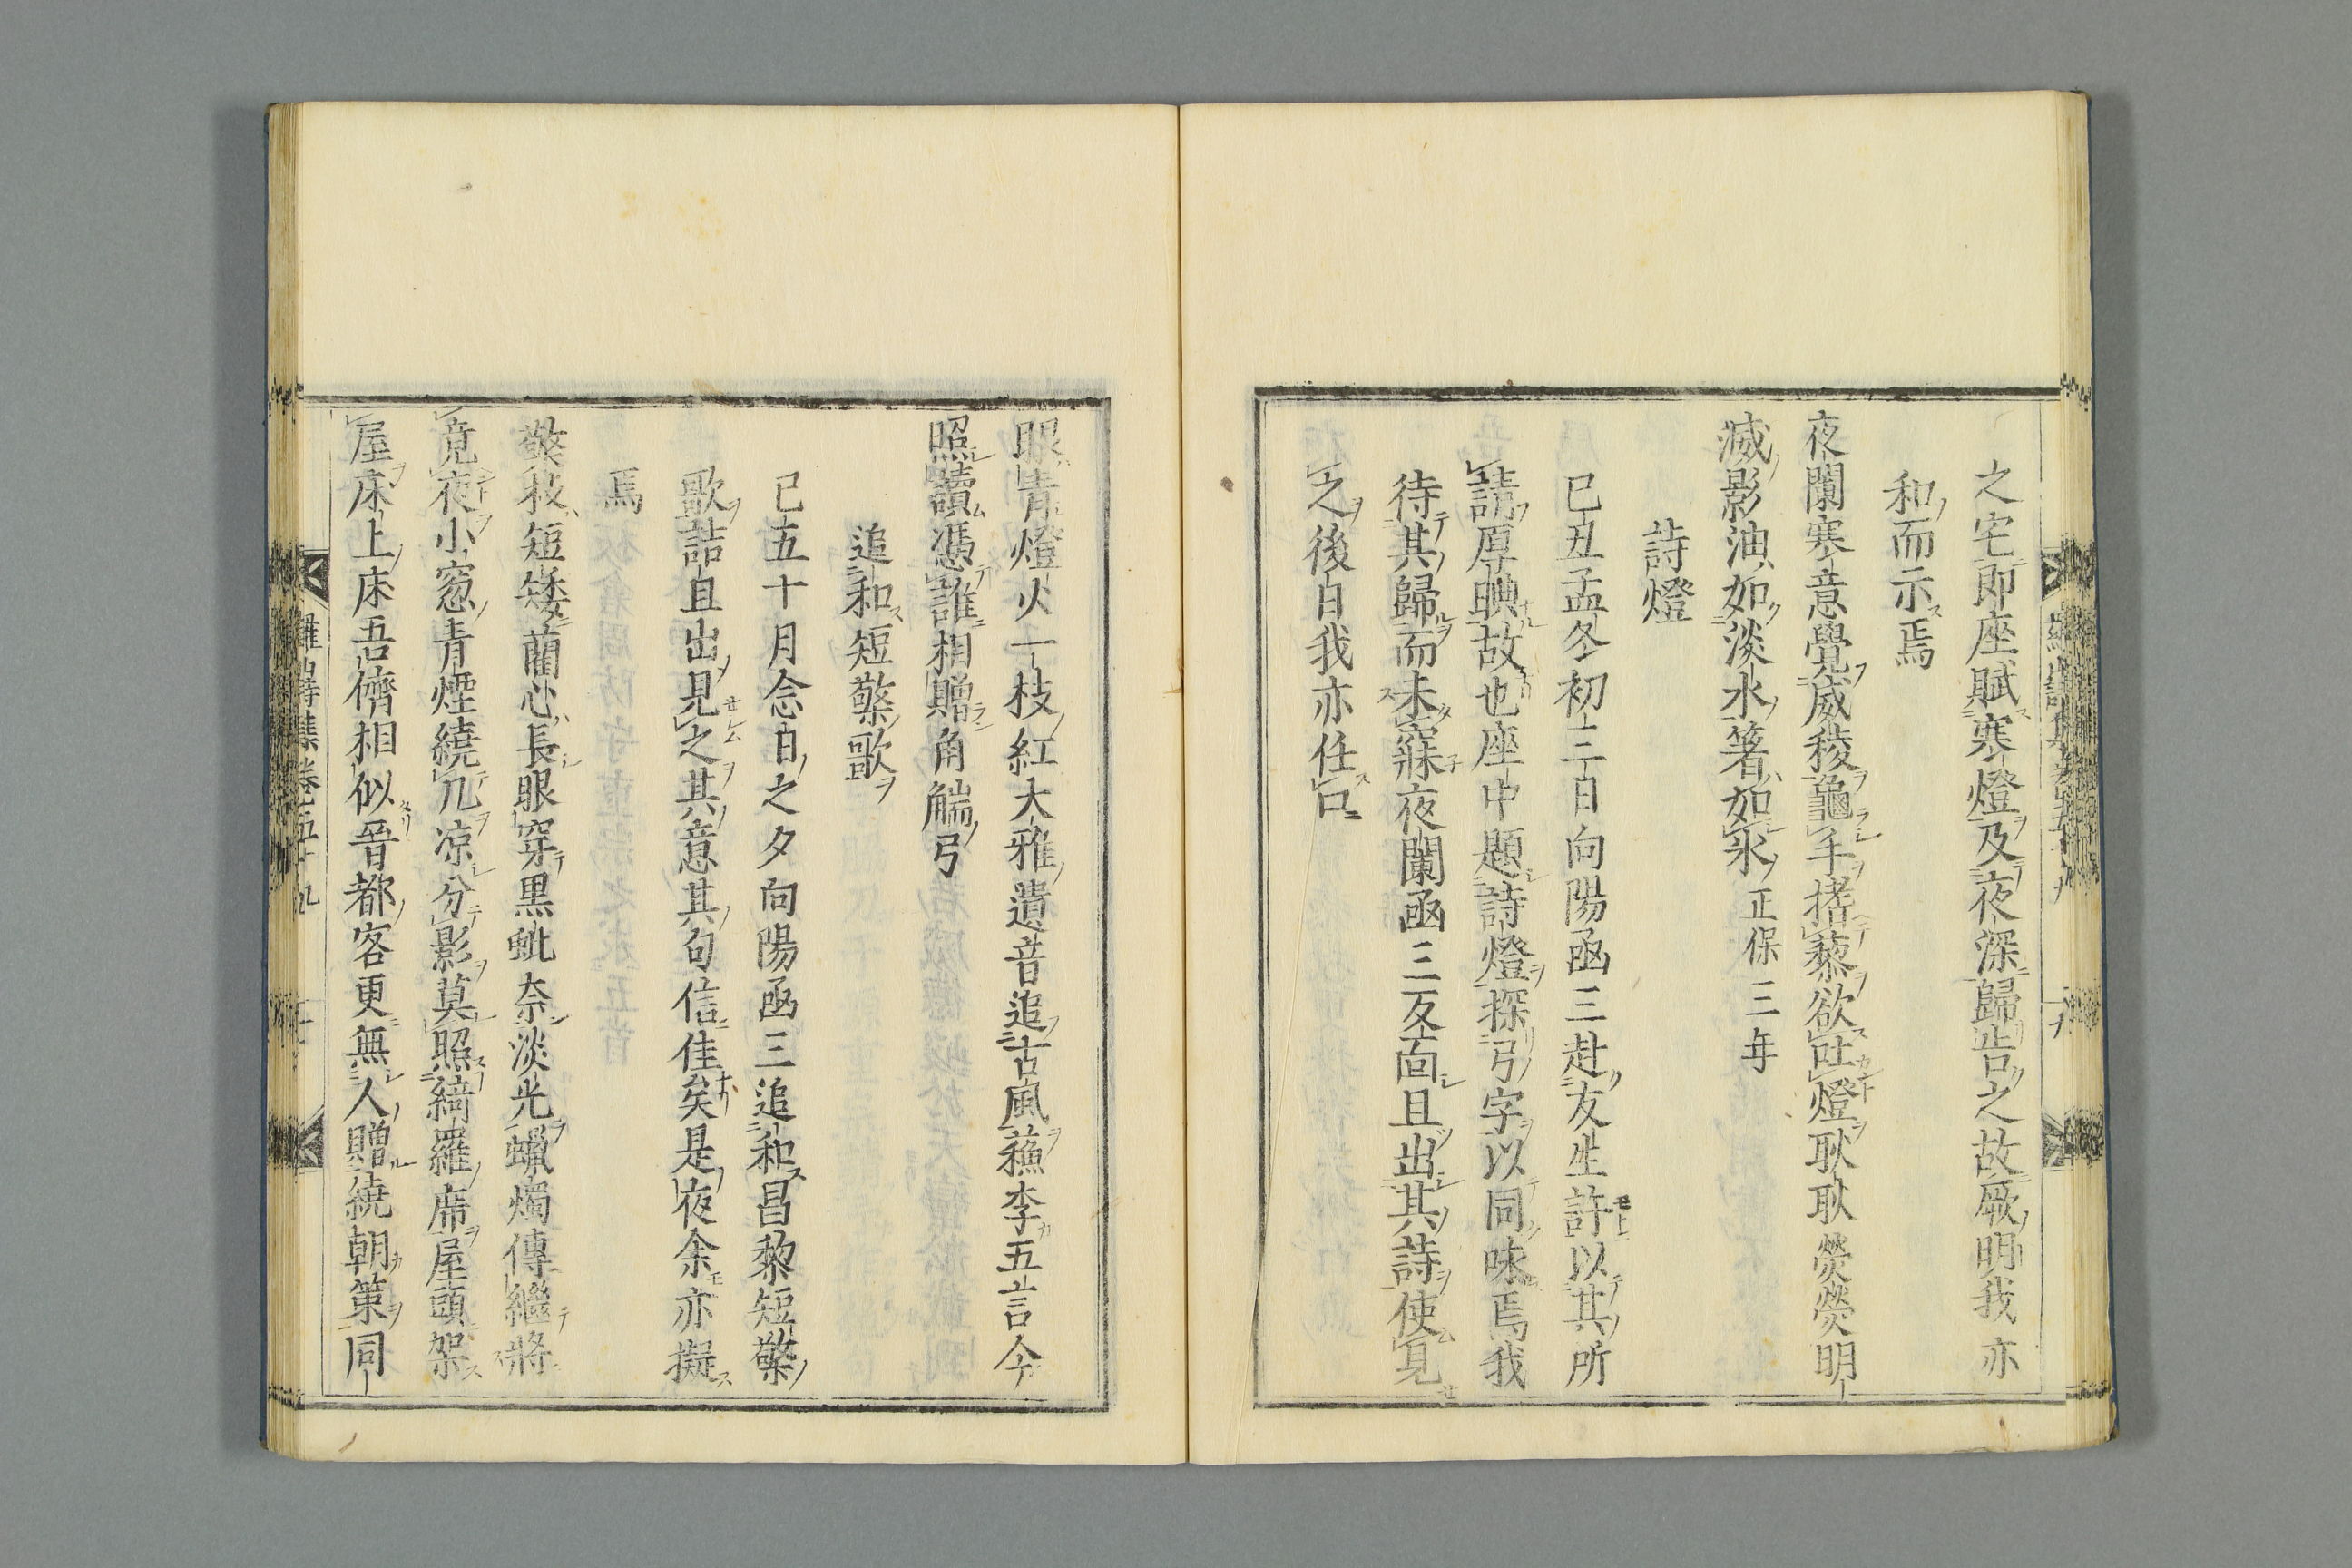 之宅即座賦寒燈及夜深歸告之故厥明我亦
和而示焉
夜闌寒意覺威稜龜手撘藜欲吐燈耿耿熒熒明
滅影油如淡水箸如氷 正保三年
詩燈
己丑孟冬初三日向陽函三赴友生許以其所
請厚腆故也座中題詩燈探弓字以同味焉我
待其歸而未寐夜闌函三反面且出其詩使見
之後日我亦任口
眼青燈火一枝紅大雅遺音追古風蘓李五言今
照讀憑誰相贈角觿弓
追和短檠歌
己五十月念日之夕向陽函三追和昌黎短檠
歌詰且出見之其意其句信佳矣是夜余亦擬
焉
檠枝短矮藺心長眼穿黒蚍奈淡光蠟燭傳繼將
竟夜小窓青煙繞几凉分影莫照綺羅席屋頭架
屋床上床吾儕相似晉都客更無人贈繞朝策同
羅山詩集卷五十九